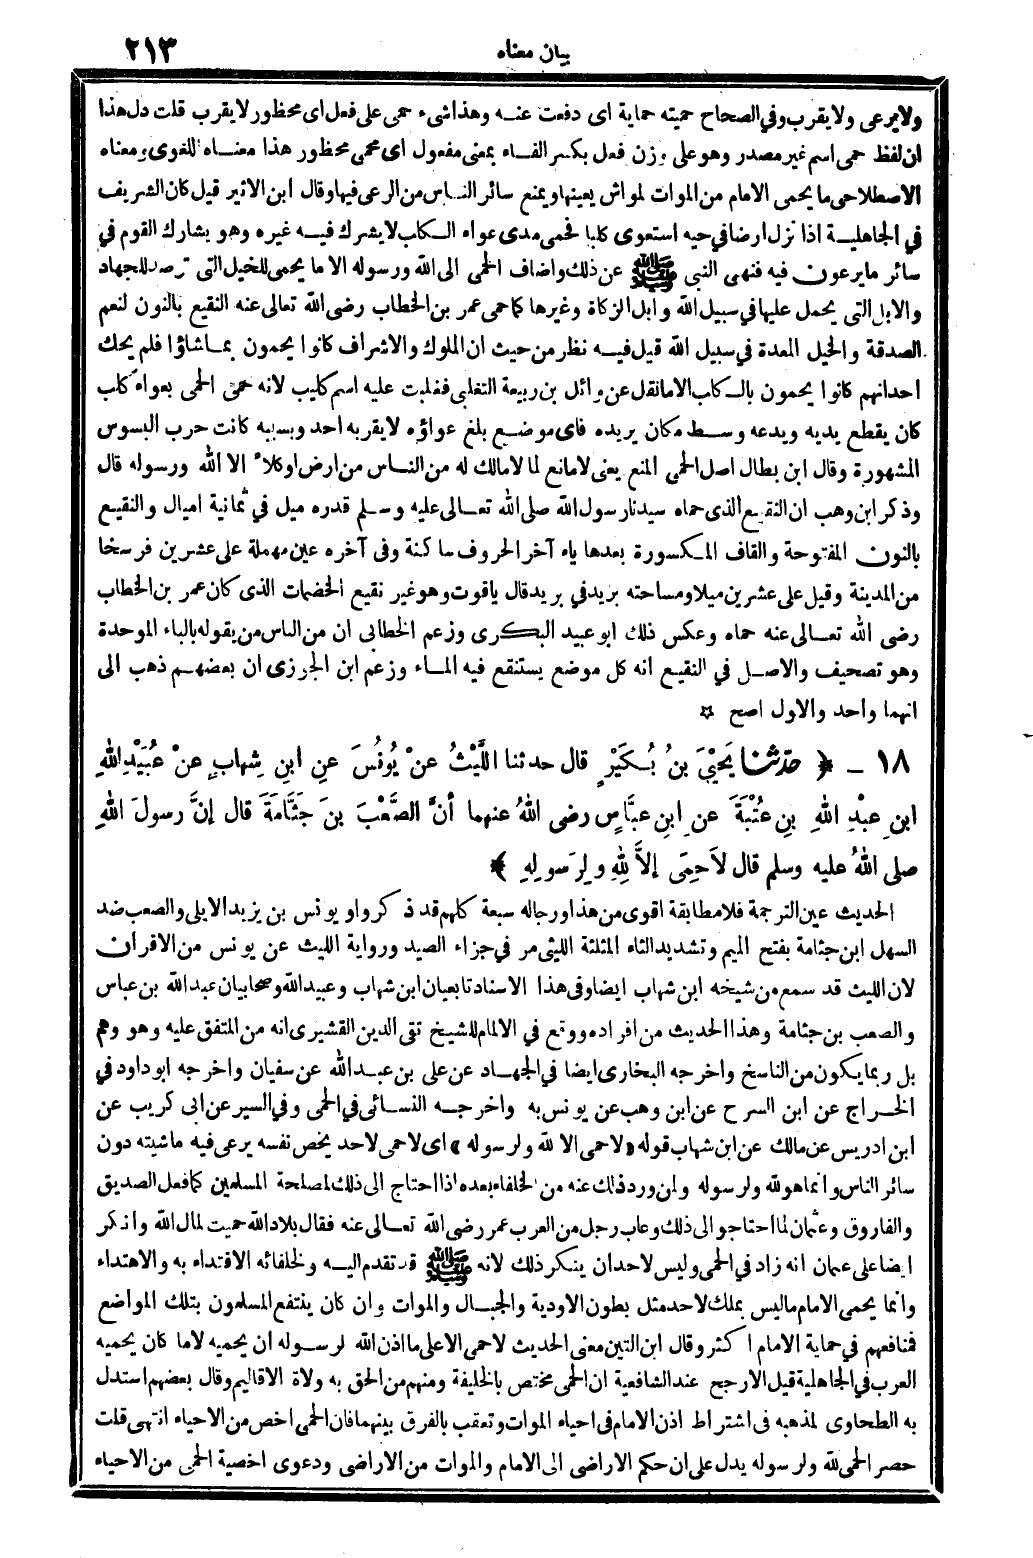 بيان معناه
٢١٣
ولا يرعى ولا يقرب وفي الصحاح حميته حماية اى دفعت عنه وهذا شىء حمى على فعل اى محظور لا يقرب قلت دل هذا
ان لفظ حمى اسم غير مصدر وهو على وزن فعل بكسر الفاء بمعنى مفعول اى محمى محظور هذا معناه اللغوى ومعناه
الاصطلاحى ما يحمى الامام من الموات لمواش يعينها ويمنع سائر الناس من الرعى فيها وقال ابن الاثير قيل كان الشريف
في الجاهلية اذا نزل ارضا في حيه استعوى كلبا فحمى مدى عواء الكلب لا يشرك فيه غيره وهو يشارك القوم في
سائر ما يرعون فيه فنهى النبى ﷺ عن ذلك واضاف الحمى الى الله ورسوله الا ما يحمى للخيل التى ترصد للجهاد
والابل التى يحمل عليها في سبيل الله وابل الزكاة وغيرها كما حمى عمر بن الخطاب رضى الله تعالى عنه النقيع بالنون لنعم
الصدقة والخيل المعدة في سبيل الله قيل فيه نظر من حيث ان الملوك والاشراف كانوا يحمون بما شاؤا فلم يحك
احد انهم كانوا يحمون بالكلب الا ما نقل عن وائل بن ربيعة التغلبى فغلبت عليه اسم كليب لانه حمى الحمى بعواء كلب
كان يقطع يديه ويدعه وسط مكان يريده فاى موضع بلغ عواؤه لا يقربه احد وبسببه كانت حرب البسوس
المشهورة وقال ابن بطال اصل الحمى المنع يعنى لا مانع لما لا مالك له من الناس من ارض او كلاء الا الله ورسوله قال
وذكر ابن وهب ان النقيع الذى حماه سيدنا رسول الله صلى الله تعالى عليه وسلم قدره ميل في ثمانية اميال والنقيع
بالنون المفتوحة والقاف المكسورة بعدها ياء آخر الحروف ساكنة وفى آخره عين مهملة على عشرين فرسخا
من المدينة وقيل على عشرين ميلا ومساحته بريد في بريد قال ياقوت وهو غير نقيع الخضمات الذى كان عمر بن الخطاب
رضى الله تعالى عنه حماه وعكس ذلك ابو عبيد البكرى وزعم الخطابى ان من الناس من يقوله بالباء الموحدة
وهو تصحيف والاصل في النقيع انه كل موضع يستنقع فيه الماء وزعم ابن الجوزى ان بعضهم ذهب الى
انهما واحد والاول اصح ☆
١٨ ـ ﴿ حدثنا يَحْيَ بنُ بُكَيْرٍ قال حدثنا اللَّيْثُ عنْ يُونُسَ عنِ ابنِ شِهابٍ عنْ عُبَيْدِ اللهِ
ابنِ عبْدِ اللهِ بنِ عُتْبَةَ عنِ ابنِ عبَّاسٍ رضى اللهُ عنهما أنَّ الصَّعْبَ بنَ جَثَّامَةَ قال إنَّ رسولَ اللهِ
صلى اللهُ عليه وسلم قال لاَ حِمَى إلاَّ لِلهِ ولِرَسولِهِ ﴾
الحديث عين الترجمة فلا مطابقة اقوى من هذا ورجاله سبعة كلهم قد ذكروا ويونس بن يزيد الايلى والصعب ضد
السهل ابن جثامة بفتح الجيم وتشديد الثاء المثلثة الليثى مر في جزاء الصيد ورواية الليث عن يونس من الاقران
لان الليث قد سمع من شيخه ابن شهاب ايضا وفى هذا الاسناد تابعيان ابن شهاب وعبيد الله وصحابيان عبد الله بن عباس
والصعب بن جثامة وهذا الحديث من افراده ووقع في الالمام للشيخ تقى الدين القشيرى انه من المتفق عليه وهو وهم
بل ربما يكون من الناسخ واخرجه البخارى ايضا في الجهاد عن على بن عبد الله عن سفيان واخرجه ابو داود في
الخراج عن ابن السرح عن ابن وهب عن يونس به واخرجه النسائى في الحمى وفي السير عن ابى كريب عن
ابن ادريس عن مالك عن ابن شهاب قوله «لا حمى الا لله ولرسوله» اى لا حمى لاحد يخص نفسه يرعى فيه ماشيته دون
سائر الناس وانما هو لله ولرسوله ولمن ورد ذلك عنه من الخلفاء بعده اذا احتاج الى ذلك لمصلحة المسلمين كما فعل الصديق
والفاروق وعثمان لما احتاجو الى ذلك وعاب رجل من العرب عمر رضى الله تعالى عنه فقال بلاد الله حميت لمال الله وانكر
ايضا على عثمان انه زاد في الحمى وليس لاحد ان ينكر ذلك لانه ﷺ قد تقدم اليه ولخلفائه الاقتداء به والاهتداء
وانما يحمى الامام ما ليس بملك لاحد مثل بطون الاودية والجبال والموات وان كان ينتفع المسلمون بتلك المواضع
فمنافعهم في حماية الامام اكثر وقال ابن التين معنى الحديث لا حمى الا على ما اذن الله لرسوله ان يحميه لا ما كان يحميه
العرب في الجاهلية قيل الارجح عند الشافعية ان الحمى مختص بالخليفة ومنهم من الحق به ولاة الاقاليم وقال بعضهم استدل
به الطحاوى لمذهبه في اشتراط اذن الامام في احياء الموات وتعقب بالفرق بينهما فان الحمى اخص من الاحياء انتهى قلت
حصر الحمى لله ولرسوله يدل على ان حكم الاراضى الى الامام والموات من الاراضى ودعوى اخصية الحمى من الاحياء